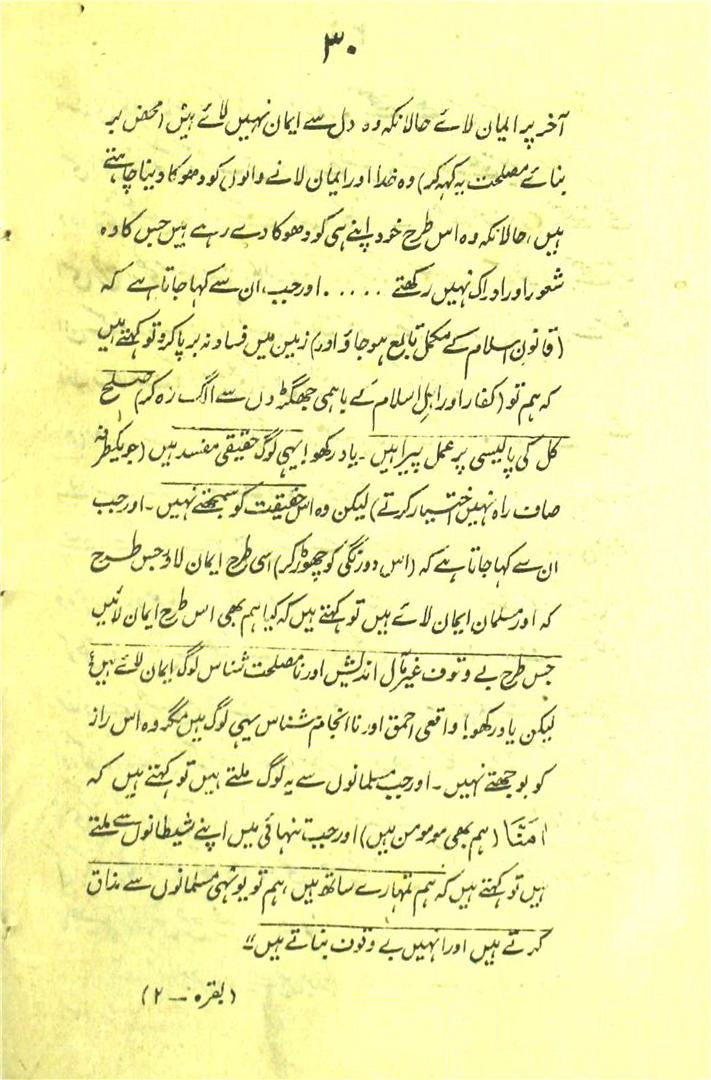 ۳۰
آخر پر ایمان لائے حالانکہ وہ دل سے ایمان نہیں لائے ہیں (محض بر
بنائے مصلحت یہ کہہ کر) وہ خدا اور ایمان لانے والوں کو دھوکا دینا چاہتے
ہیں، حالانکہ وہ اس طرح خود اپنے ہی کو دھوکا دے رہے ہیں جس کا وہ
شعور اور ادراک نہیں رکھتے ..... اور جب، ان سے کہا جاتا ہے کہ
(قانونِ اسلام کے مکمل تابع ہو جاؤ اور) زمین میں فساد نہ برپا کرو تو کہتے ہیں
کہ ہم تو (کفار اور اہلِ اسلام کے باہمی جھگڑوں سے الگ رہ کر) صلح
کل کی پالیسی پر عمل پیرا ہیں۔ یاد رکھو! یہی لوگ حقیقی مفسد ہیں (جو یکطرفہ
صاف راہ نہیں اختیار کرتے) لیکن وہ اس حقیقت کو سمجھتے نہیں۔ اور جب
ان سے کہا جاتا ہے کہ (اس دورنگی کو چھوڑ کر) اسی طرح ایمان لاؤ جس طرح
کہ اور مسلمان ایمان لائے ہیں تو کہتے ہیں کہ کیا ہم بھی اس طرح ایمان لائیں
جس طرح بے وقوف غیر مآل اندیش اور نا مصلحت شناس لوگ ایمان لائے ہیں؟
لیکن یاد رکھو! واقعی احمق اور نا انجام شناس یہی لوگ ہیں مگر وہ اس راز
کو بوجھتے نہیں۔ اور جب مسلمانوں سے یہ لوگ ملتے ہیں تو کہتے ہیں کہ
اٰمَنَّا (ہم بھی مومن ہیں) اور جب تنہائی میں اپنے شیطانوں سے ملتے
ہیں تو کہتے ہیں کہ ہم تمہارے ساتھ ہیں، ہم تو یونہی مسلمانوں سے مذاق
کرتے ہیں اور انہیں بے وقوف بناتے ہیں"
(بقرہ – ۲)